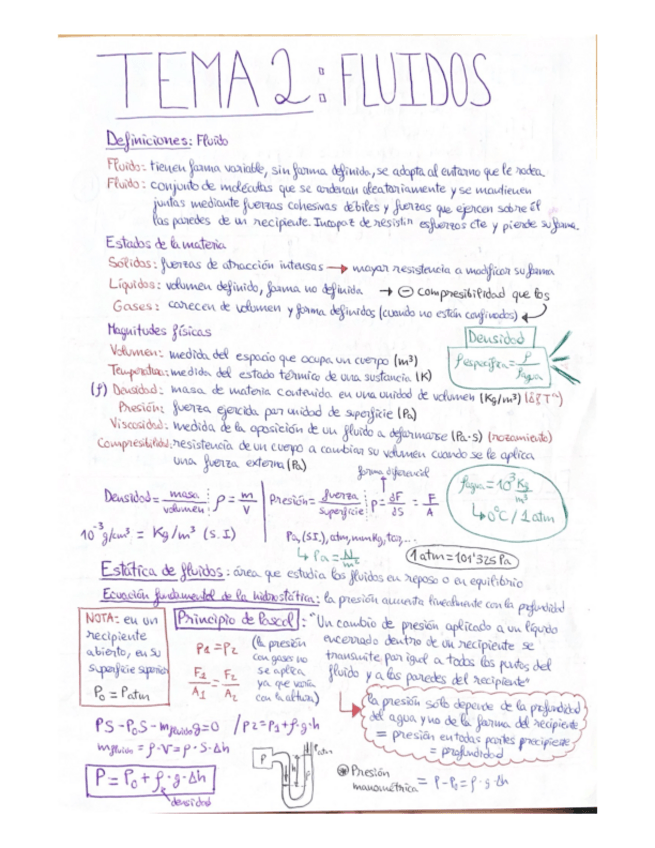 TEMA 2: FLUIDOS
Definiciones: Fluido
Fluido: tienen forma variable, sin forma definida, se adapta al entorno que le rodea
Fluido: conjunto de moléculas que se ordenan aleatoriamente y se mantienen
juntas mediante fuerzas cohesivas débiles y fuerzas que ejercen sobre él
las paredes de un recipiente. Incapaz de resistir esfuerzos cte y pierde su forma.
Estados de la materia
Sólidos: fuerzas de atracción intensas → mayor resistencia a modificar su forma
Líquidos: volumen definido, forma no definida → ⊖ compresibilidad que los
Gases: carecen de volumen y forma definidos (cuando no están confinados) ↵
Magnitudes físicas
Densidad
ρ específica = ρ / ρagua
Volumen: medida del espacio que ocupa un cuerpo (m³)
Temperatura: medida del estado térmico de una sustancia (K)
(ρ) Densidad: masa de materia contenida en una unidad de volumen (Kg/m³)
Presión: fuerza ejercida por unidad de superficie (Pa)
Viscosidad: medida de la oposición de un fluido a deformarse (Pa·s) (rozamiento)
Compresibilidad: resistencia de un cuerpo a cambiar su volumen cuando se le aplica
una fuerza externa (Pa)
forma diferencial
Densidad = masa / volumen ; ρ = m / V
Presión = fuerza / superficie ; P = dF / dS = F / A
ρagua = 10³ Kg / m³
↳ 0°C / 1 atm
10⁻³ g/cm³ = Kg/m³ (S.I)
Pa, (S.I.), atm, mmHg, bar,...
↳ Pa = N / m²
1 atm = 101'325 Pa
Estática de fluidos: área que estudia los fluidos en reposo o en equilibrio
Ecuación fundamental de la hidrostática: la presión aumenta linealmente con la profundidad
NOTA: en un
recipiente
abierto, en su
superficie superior
P₀ = Patm
Principio de Pascal: "Un cambio de presión aplicado a un líquido
encerrado dentro de un recipiente se
transmite por igual a todos los puntos del
fluido y a las paredes del recipiente"
P1 = P2
F1 / A1 = F2 / A2
(la presión
con gases no
se aplica
ya que varía
con la altura)
la presión sólo depende de la profundidad
del agua y no de la forma del recipiente
= presión en todas partes
= profundidad
PS - P₀S - mfluido g = 0 / P2 = P1 + ρ·g·h
mfluido = ρ·V = ρ·S·Δh
P = P₀ + ρ·g·Δh
densidad
P
h
Patm
⊛ Presión manométrica = P - P₀ = ρ·g·Δh